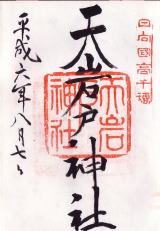 日向國高千穗
天岩戸神社
天岩
神社
平成六年八月七日